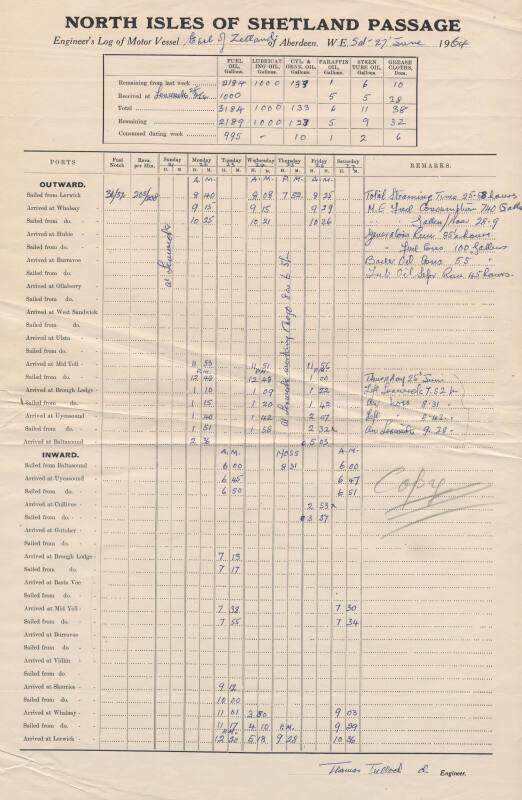 NORTH ISLES OF SHETLAND PASSAGE
Engineer's Log of Motor Vessel Earl of Zetland of Aberdeen. W.E. Sat- 27 June 1964
FUEL OIL, Gallons. LUBRICATING OIL, Gallons. CYL. & GENR. OIL, Gallons. PARAFFIN OIL, Gallons. STERN TUBE OIL, Gallons. GREASE CLOTHS, Dozs.
Remaining from last week 2184 1000 133 1 6 10
Received at Lerwick 1000 5 5 28
Total 3184 1000 133 6 11 38
Remaining 2189 1000 123 5 9 32
Consumed during week 995 - 10 1 2 6
PORTS Fuel Notch Revs. per Min. Sunday 21 Monday 22 Tuesday 23 Wednesday 24 Thursday 25 Friday 26 Saturday 27 REMARKS.
H. M. H. M. H. M. H. M. H. M. H. M. H. M.
OUTWARD. A.M. A.M. P.M. A.M.
Sailed from Lerwick 8 40 8 08 7 52 8 25 Total Steaming Time 25·58 hours
Arrived at Whalsay 9 15 9 15 9 29 M.E. Fuel Consumption 740 Galls
Sailed from do. 10 25 10 21 10 26 Gallon/Hour 25·9
Arrived at Hubie Generators Run hours
Sailed from do. " Fuel Cons 100 Gallons
Arrived at Burravoe Boiler Oil Cons 55 "
Sailed from do. Lub. Oil Sepr Run 45 hours.
Arrived at Ollaberry
Sailed from do.
Arrived at West Sandwick
Sailed from do.
Arrived at Ulsta
Sailed from do.
at Lerwick
Arrived at Mid Yell 11 53 11 51 11 56
P.M. P.M. P.M.
Sailed from do. 12 48 12 48 1 00 Thursday 25 June
Arrived at Brough Lodge 1 10 1 09 1 22 Left Lerwick 7.52 p
Sailed from do. 1 15 1 20 1 42 Arr 8·31
Arrived at Uyeasound 1 40 1 42 2 07 Left
Sailed from do. 1 51 1 58 2 32 Arr Lerwick 9·28
Arrived at Baltasound 2 36 5 03
INWARD. A.M. NOSS A.M.
Sailed from Baltasound 6 00 8 31 6 00
Arrived at Uyeasound 6 45 6 47
Sailed from do. 6 50 6 51
Copy
Arrived at Cullivoe 2 53
Sailed from do. 3 37
Arrived at Gutcher
Sailed from do.
Arrived at Brough Lodge 7 13
Sailed from do. 7 17
Arrived at Basta Voe
Sailed from do.
Arrived at Mid Yell 7 38 7 30
Sailed from do. 7 55 7 34
Arrived at Burravoe
Sailed from do.
Arrived at Vidlin
Sailed from do.
Arrived at Skerries 9 12
Sailed from do. 10 00
Arrived at Whalsay 11 01 3 50 9 03
Sailed from do. 11 17 4 10 P.M. 9 29
Arrived at Lerwick 12 20 5 18 9 28 10 36
Thomas Tulloch Engineer.